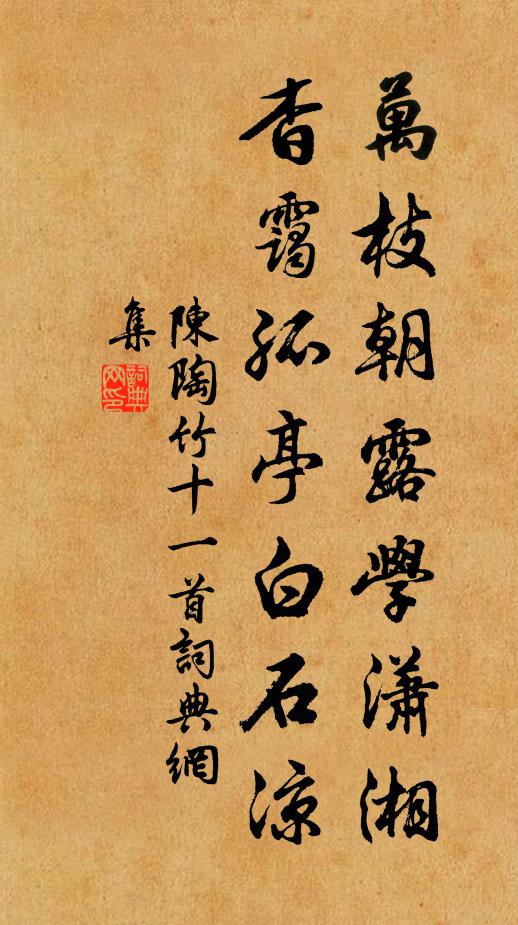 萬枝朝露學瀟湘
杳靄孤亭白石涼
陳陶竹十一首詞典網
集
詞典网印